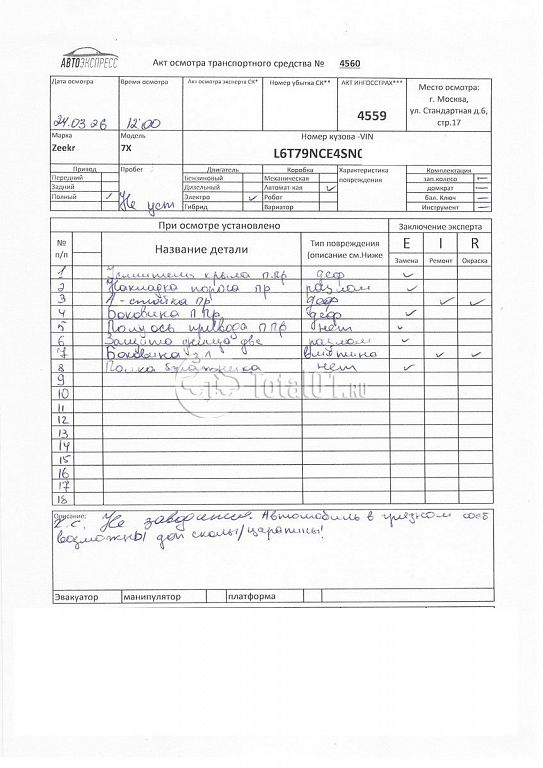 АВТОЭКСПРЕСС
Акт осмотра транспортного средства № 4560
Дата осмотра
24.03.26
Время осмотра
12:00
Акт осмотра эксперта СК*
Номер убытка СК**
АКТ ИНГОССТРАХ***
4559
Место осмотра:
г. Москва,
ул. Стандартная д.6,
стр.17
Марка
Zeekr
Модель
7X
Номер кузова -VIN
L6T79NCE4SN
Привод
Передний
Задний
Полный ✓
Пробег
Не уст
Двигатель
Бензиновый
Дизельный
Электро ✓
Гибрид
Коробка
Механическая
Автомат-кая ✓
Робот
Вариатор
Характеристика
повреждения
Комплектация
зап.колесо —
домкрат —
бал. Ключ —
Инструмент —
При осмотре установлено
Заключение эксперта
№
п/п
Название детали
Тип повреждения
(описание см.Ниже
E I R
Замена Ремонт Окраска
1 Усилитель крыла п.пр деф ✓
2 Накладка порога пр разлом ✓
3 А-стойка пр деф ✓ ✓
4 Боковина п пр, деф ✓
5 Полуось привода п пр нет ✓
6 Защита днища две разлом ✓
7 Боковина з л вмятина ✓ ✓
8 Полка багажника нет ✓
9
10
11
12
13
14
15
16
17
18
Total01.ru
Описание:
т.с. Не заводится. Автомобиль в грязном сост
возможны доп сколы/царапины!
Эвакуатор манипулятор платформа